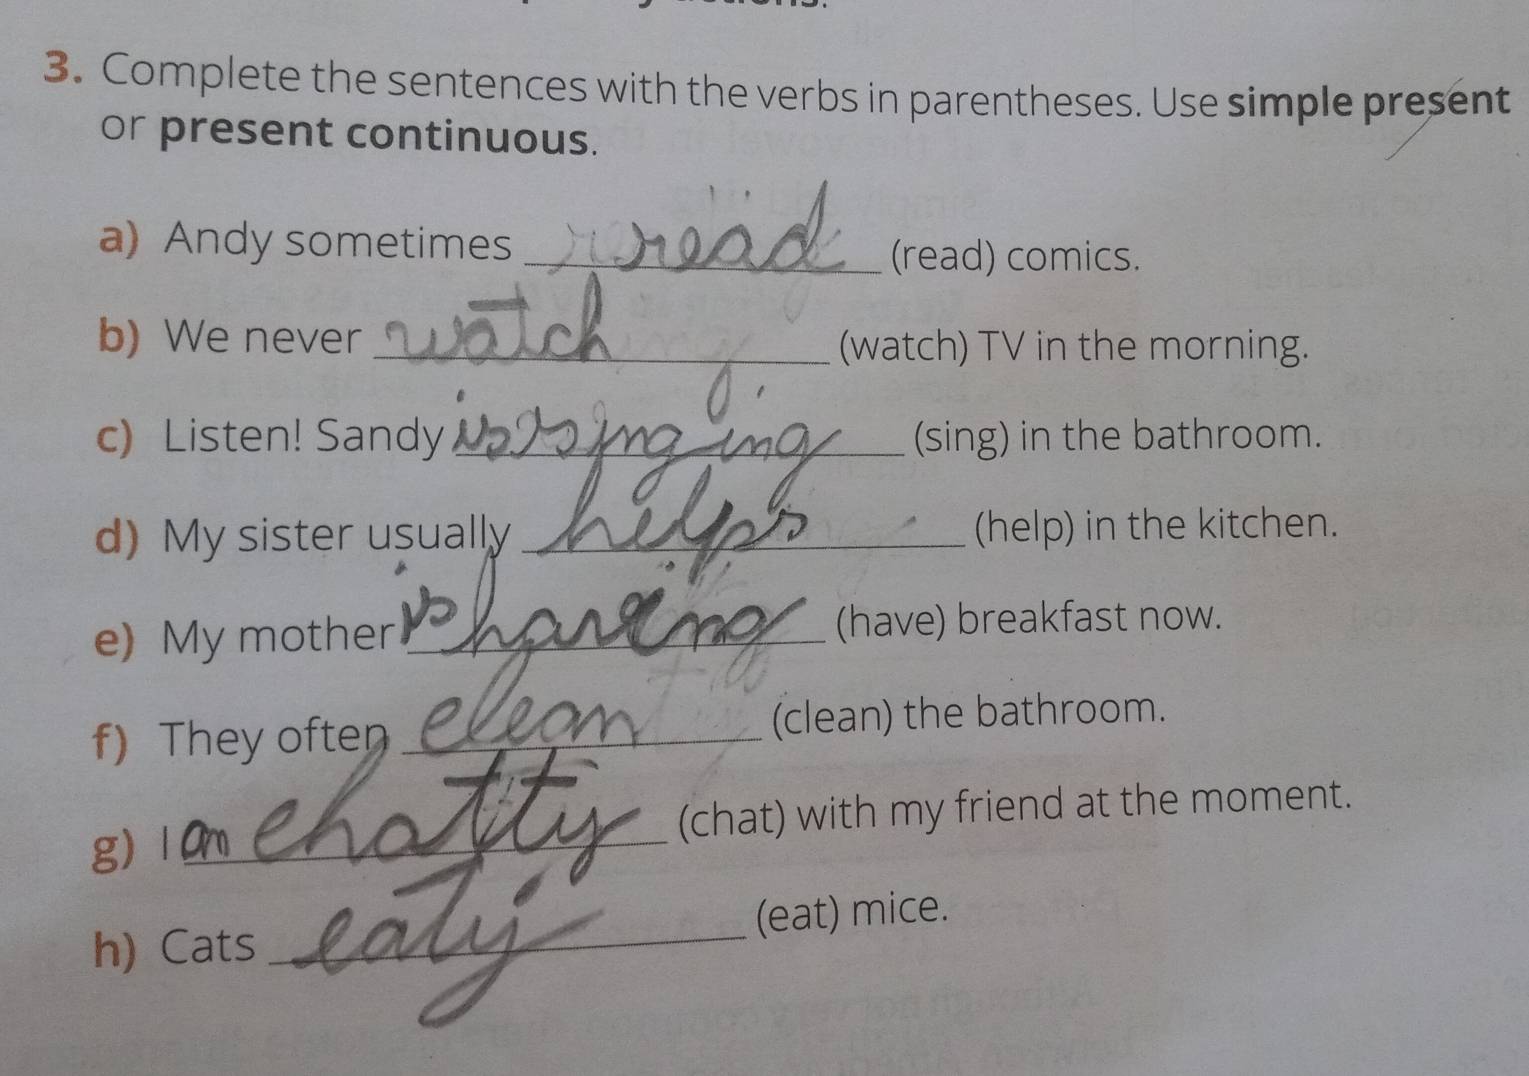 3. Complete the sentences with the verbs in parentheses. Use simple present
or present continuous.
a) Andy sometimes read (read) comics.
b) We never watch (watch) TV in the morning.
c) Listen! Sandy is singing (sing) in the bathroom.
d) My sister usually helps (help) in the kitchen.
e) My mother is having (have) breakfast now.
f) They often clean (clean) the bathroom.
g) I am chatty (chat) with my friend at the moment.
h) Cats eaty (eat) mice.